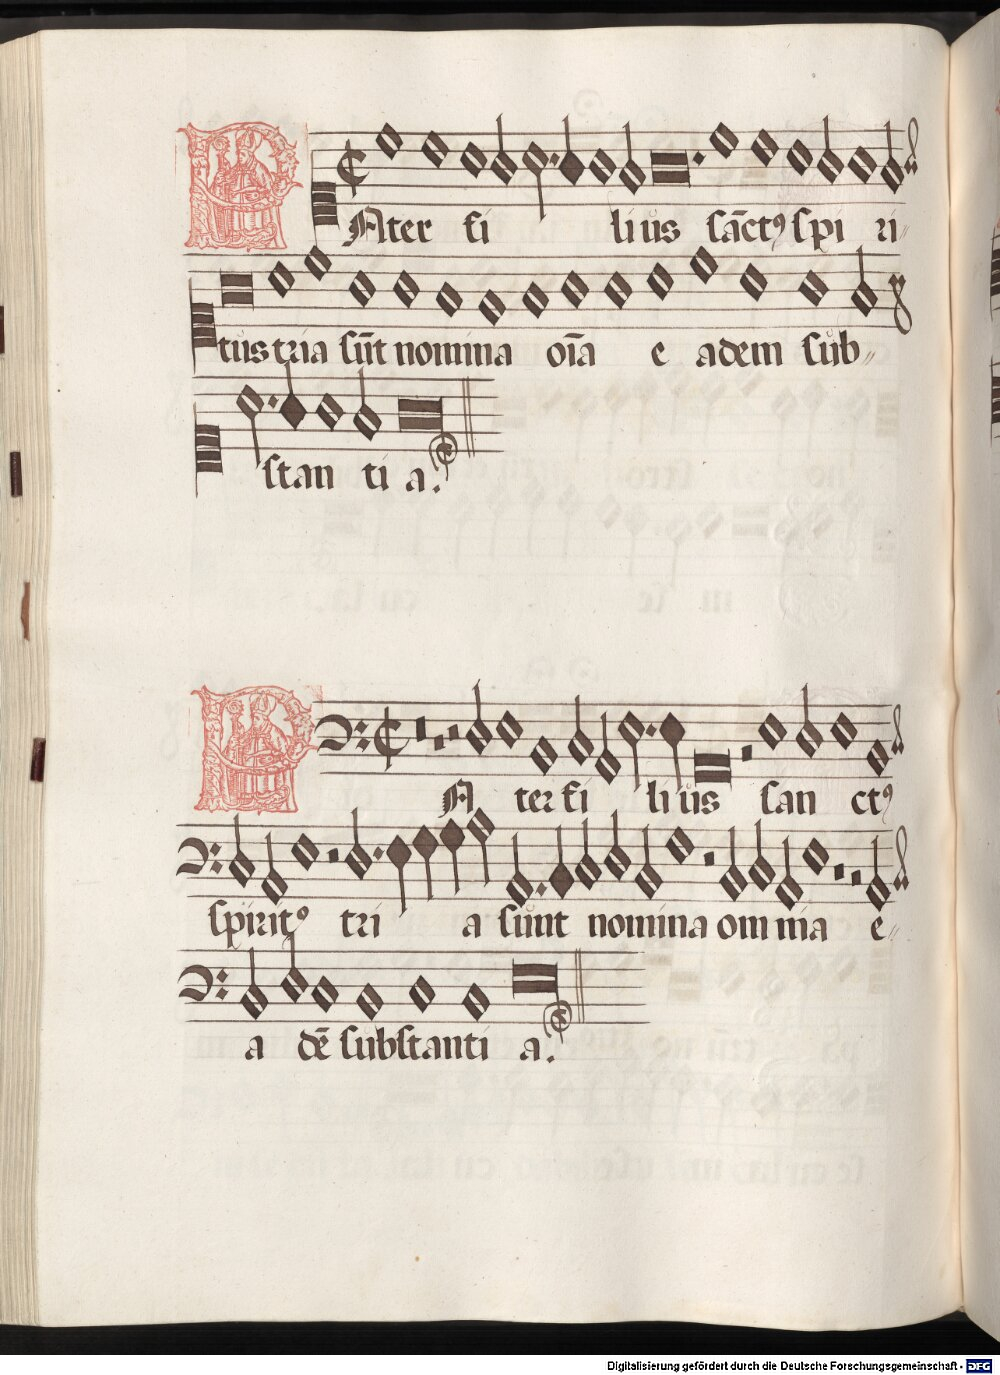 PAter fi lius sāctꝰ spi ri
tus tria sūt nomina oīa e adem sub
stan ti a.
PAter fi li us san ctꝰ
spiritꝰ tri a sunt nomina omnia e
a dē substanti a.
Digitalisierung gefördert durch die Deutsche Forschungsgemeinschaft - DFG